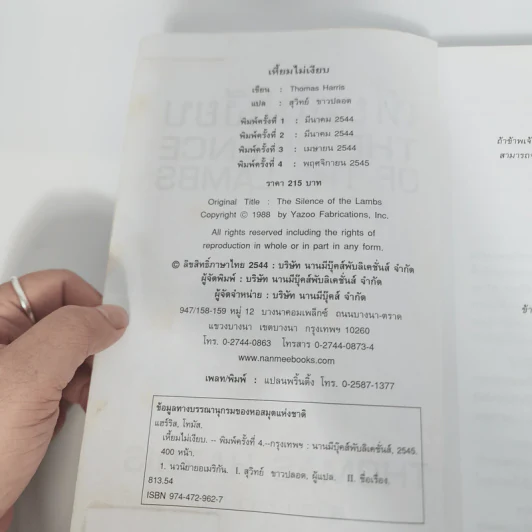 เหี้ยมไม่เงียบ
เขียน : Thomas Harris
แปล : สุวิทย์ ขาวปลอด
พิมพ์ครั้งที่ 1 : มีนาคม 2544
พิมพ์ครั้งที่ 2 : มีนาคม 2544
พิมพ์ครั้งที่ 3 : เมษายน 2544
พิมพ์ครั้งที่ 4 : พฤศจิกายน 2545
ราคา 215 บาท
Original Title : The Silence of the Lambs
Copyright © 1988 by Yazoo Fabrications, Inc.
All rights reserved including the rights of
reproduction in whole or in part in any form.
© ลิขสิทธิ์ภาษาไทย 2544 : บริษัท นานมีบุ๊คส์พับลิเคชั่นส์ จำกัด
ผู้จัดพิมพ์ : บริษัท นานมีบุ๊คส์พับลิเคชั่นส์ จำกัด
ผู้จัดจำหน่าย : บริษัท นานมีบุ๊คส์ จำกัด
947/158-159 หมู่ 12 บางนาคอมเพล็กซ์ ถนนบางนา-ตราด
แขวงบางนา เขตบางนา กรุงเทพฯ 10260
โทร. 0-2744-0863 โทรสาร 0-2744-0873-4
www.nanmeebooks.com
เพลท/พิมพ์ : แปลนพริ้นติ้ง โทร. 0-2587-1377
ข้อมูลทางบรรณานุกรมของหอสมุดแห่งชาติ
แฮร์ริส, โทมัส.
เหี้ยมไม่เงียบ. -- พิมพ์ครั้งที่ 4.--กรุงเทพฯ : นานมีบุ๊คส์พับลิเคชั่นส์, 2545.
400 หน้า.
1. นวนิยายอเมริกัน. I. สุวิทย์ ขาวปลอด, ผู้แปล. II. ชื่อเรื่อง.
813.54
ISBN 974-472-962-7